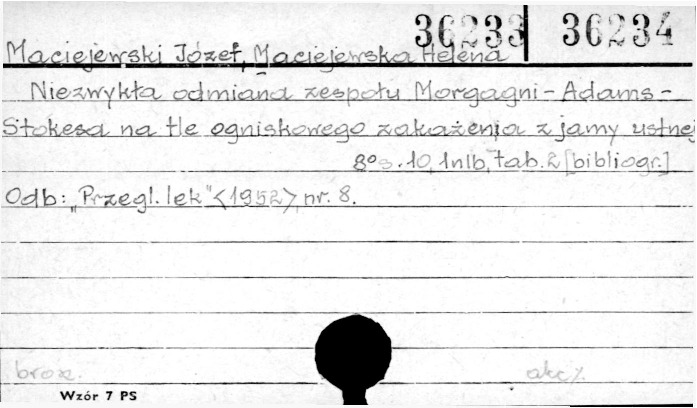 36233 36234
Maciejewski Józef, Maciejewska Helena
Niezwykła odmiana zespołu Morgagni-Adams-
Stokesa na tle ogniskowego zakażenia z jamy ustnej
8° s. 10, 1nlb, tab. 2 [bibliogr.]
Odb: "Przegl. lek" <1952>, nr. 8.
brosz. akc/.
Wzór 7 PS